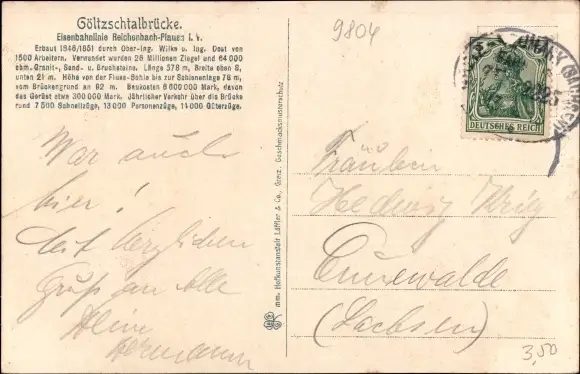 Göltzschtalbrücke.
Eisenbahnlinie Reichenbach-Plauen i. V.
Erbaut 1846/1851 durch Ober-Ing. Wilke u. Ing. Dost von
1500 Arbeitern. Verwendet wurden 26 Millionen Ziegel und 64000
cbm. Granit-, Sand- u. Bruchsteine. Länge 578 m, Breite oben 8,
unten 21 m. Höhe von der Fluss-Sohle bis zur Schienenlage 78 m,
vom Brückengrund an 92 m. Baukosten 6600000 Mark, davon
das Gerüst etwa 300000 Mark. Jährlicher Verkehr über die Brücke
rund 7500 Schnellzüge, 13000 Personenzüge, 11000 Güterzüge.
9804
DEUTSCHES REICH
War auch
hier!
Mit herzlichen
Gruß an Alle
Hermann
mm. Hofkunstanstalt Löffler & Co., Greiz. Geschmacksmusterschutz
Fräulein
Hedwig
Cunewalde
(Sachsen)
3,50